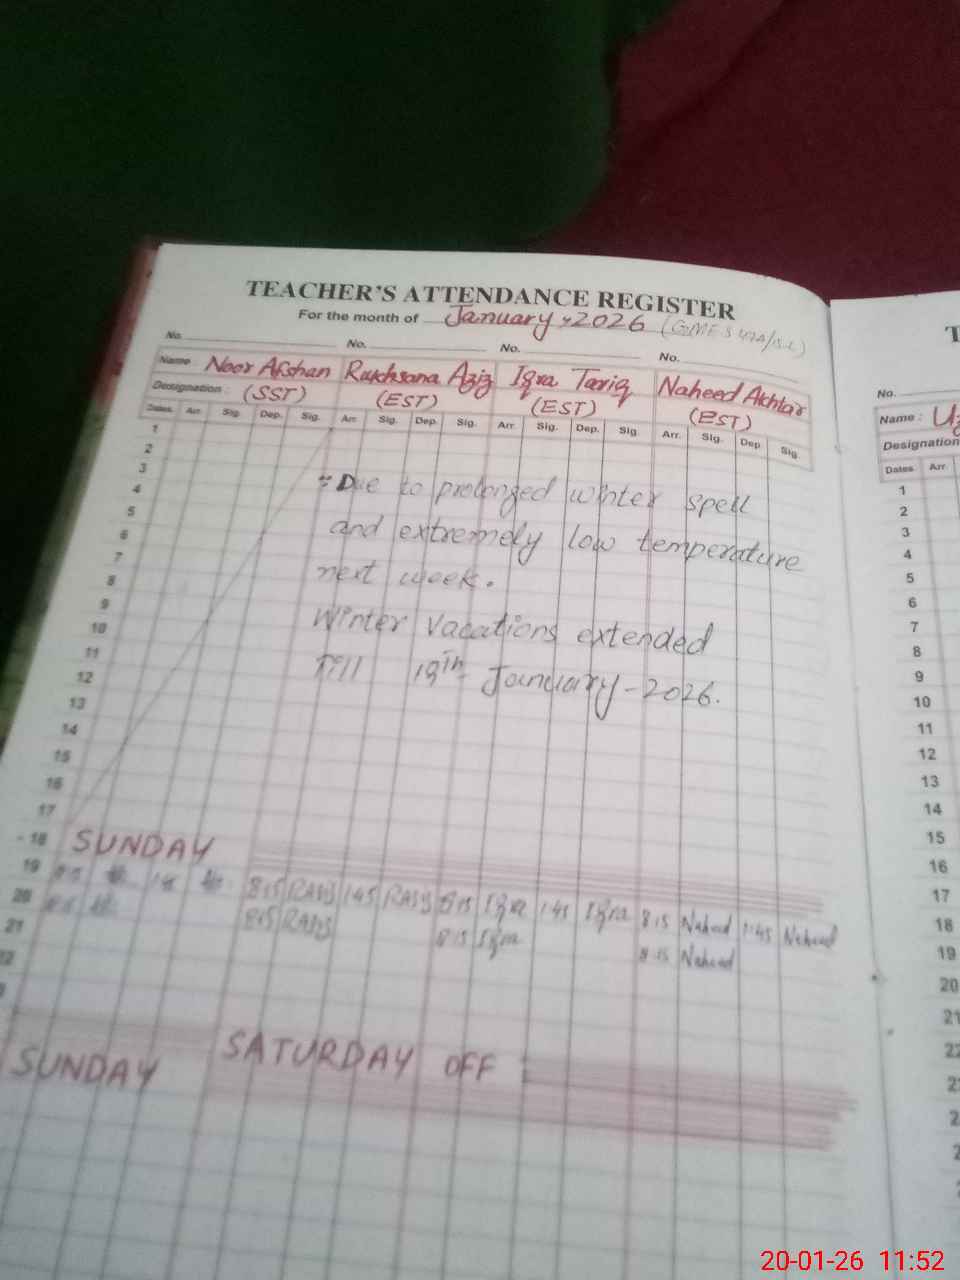 TEACHER'S ATTENDANCE REGISTER
For the month of January, 2026
No. No. No. No.
Name : Noor Afshan Rukhsana Aziz Iqra Tariq Naheed Akhtar
Designation : (SST) (EST) (EST) (EST)
Dates. Arr. Sig. Dep. Sig. Arr. Sig. Dep. Sig. Arr. Sig. Dep. Sig. Arr. Sig. Dep. Sig.
1
2
3
4
5
6
7
8
9
10
11
12
13
14
15
16
17
18
19
20
21
∵ Due to prolonged winter spell
and extremely low temperature
next week.
Winter vacations extended
Till 19th January-2026.
SUNDAY
8:15 1:45 8:15 1:45 8:15 Iqra 1:45 Iqra 8:15 Naheed 1:45 Naheed
8:15 8:15 8:15 Iqra 8:15 Naheed
SATURDAY OFF
SUNDAY
No.
Name :
Designation
Dates Arr.
1
2
3
4
5
6
7
8
9
10
11
12
13
14
15
16
17
18
19
20
21
22
20-01-26 11:52